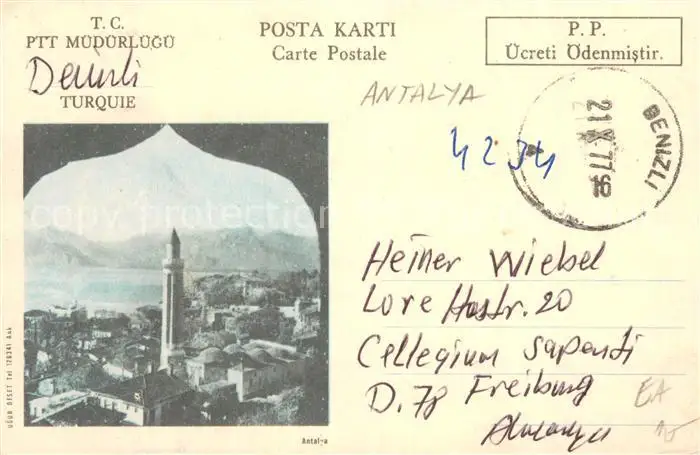 T. C.
PTT MÜDÜRLÜĞÜ
Denizli
TURQUIE
POSTA KARTI
Carte Postale
P. P.
Ücreti Ödenmiştir.
ANTALYA
4234
DENIZLI
21 X 77
Heiner Wiebel
Lore Hostr. 20
Collegium sapenti
D. 78 Freiburg
Almanya
EA
UĞUR DESET Tel 178341 Ank
Antalya